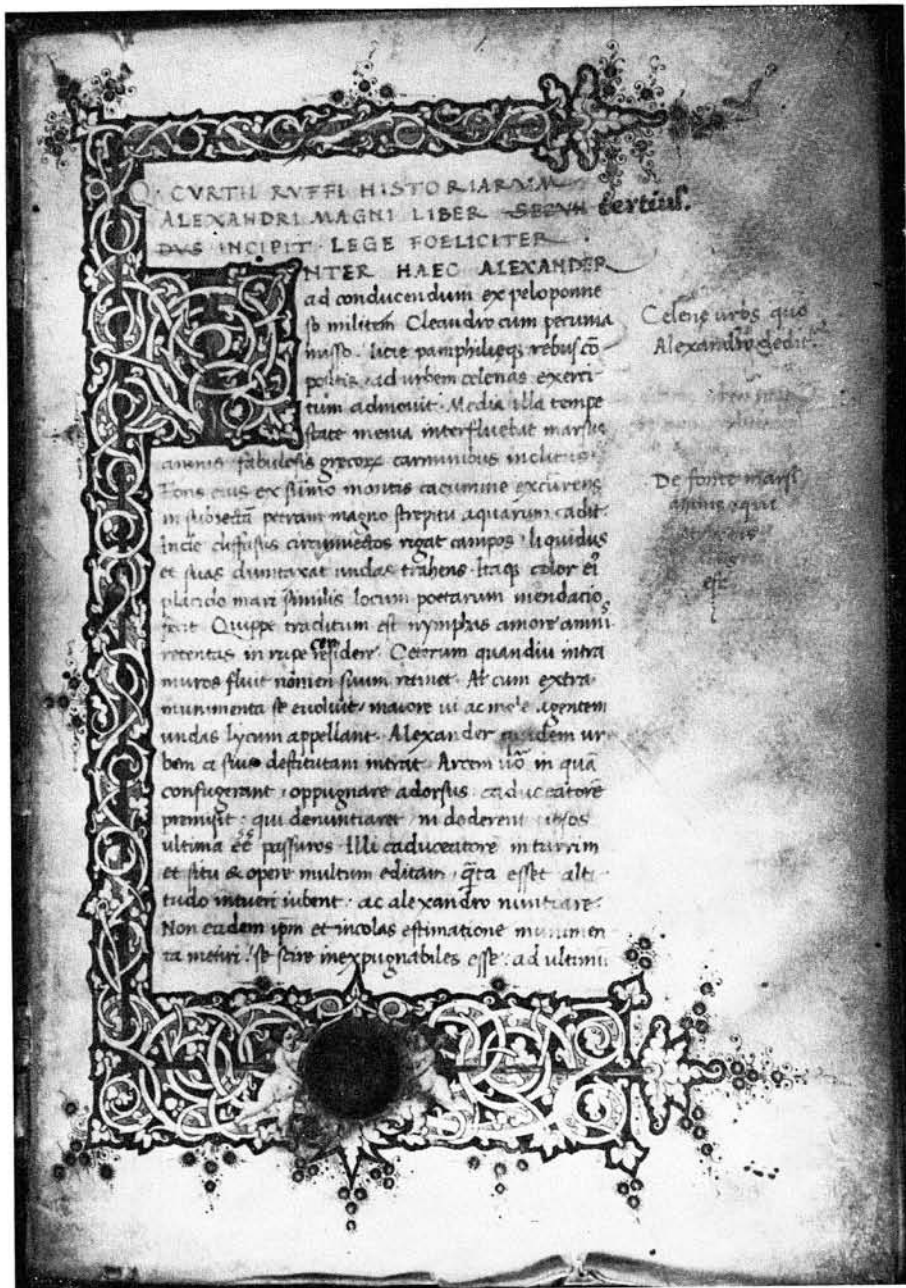 Q. CVRTII RVFFI HISTORIARVM
ALEXANDRI MAGNI LIBER SECVN tertius.
DVS INCIPIT · LEGE FOELICITER ·
INTER HAEC ALEXANDER
ad conducendum ex peloponne
so militem Cleandro cum pecunia
misso · licie pamphilieq; rebus cō
positis · ad urbem celenas exerci
tum admouit · Media illa tempe
state menia interfluebat marsus
amnis · fabulosis grecorꝝ carminibus inclitus ·
Fons eius ex sūmo montis cacumine excurens
in subiectā petram magno strepitu aquarum cadit ·
Inde diffusus circumiectos rigat campos · liquidus
et suas dumtaxat undas trahens · Itaq; color eiꝰ
placido mari similis locum poetarum mendacio
fecit · Quippe traditum est nymphas amore amnis
retentas in rupe residere · Ceterum quandiu intra
muros fluit nomen suum retinet · At cum extra
munimenta se euoluit · maiore ui ac mole agentem
undas lycum appellant · Alexander quidem ur
bem a suis destitutam intrat · Arcem uō in quā
confugerant · oppugnare adorsus caduceatorē
premisit · qui denuntiaret · ni dederent ipsos
ultima eē passuros · Illi caduceatorē in turrim
et situ & opere multum editam · q̄ta esset alti
tudo intueri iubent · ac alexandro nuntiare ·
Non eadem ipm̄ et incolas estimatione munimen
ta metiri · se scire inexpugnabiles esse · ad ultimū
Celene urbs quo
Alexandro
De fonte marsi
amnis
est